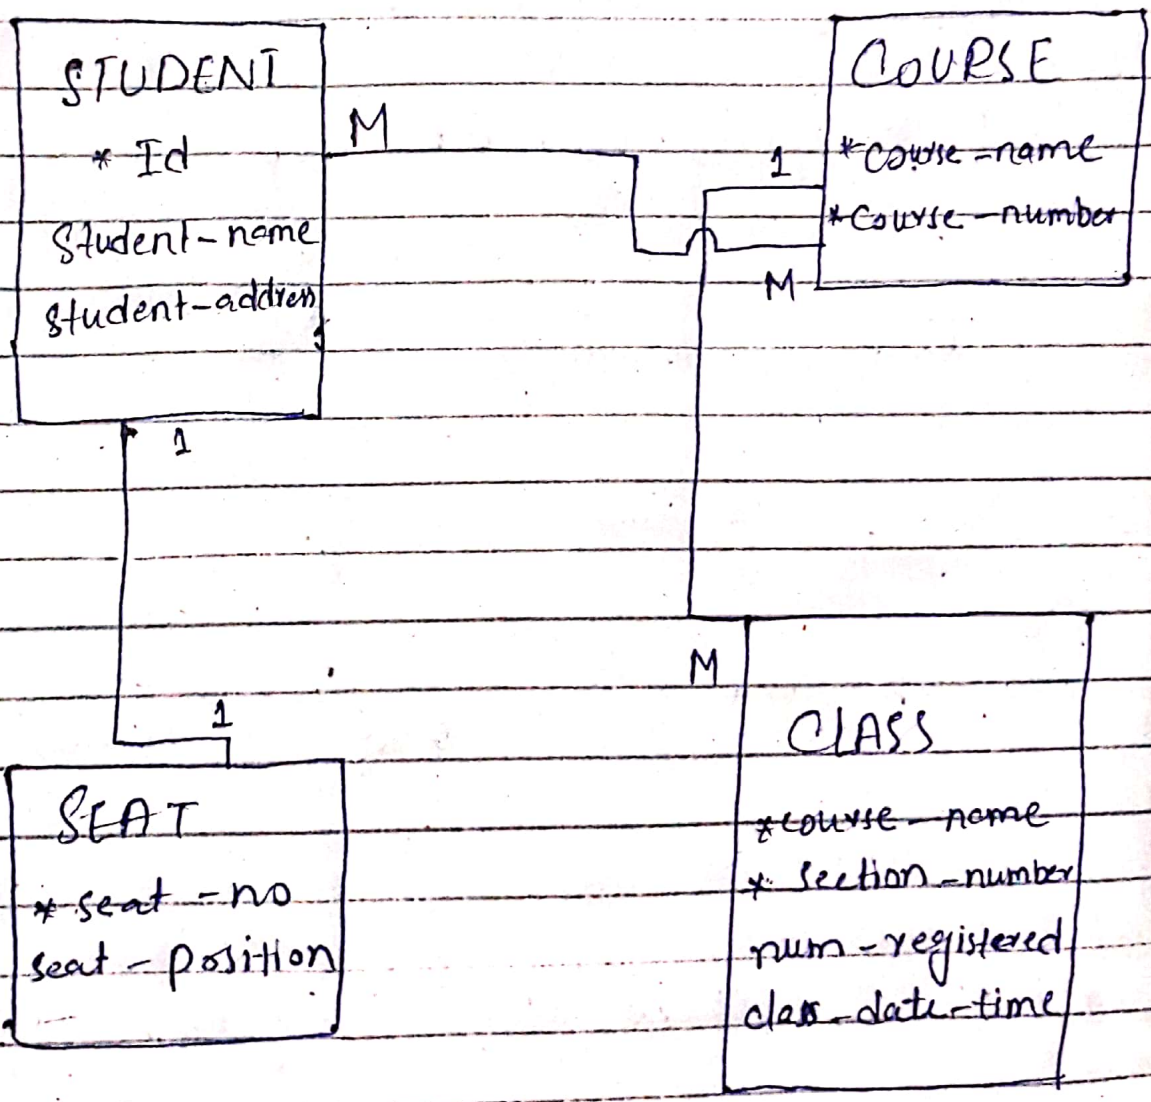 STUDENT
* Id
Student-name
student-address
M
1
COURSE
*course-name
*Course-number
1
M
1
SEAT
* seat-no
seat-position
M
CLASS
*course-name
* section-number
num-registered
class-date-time